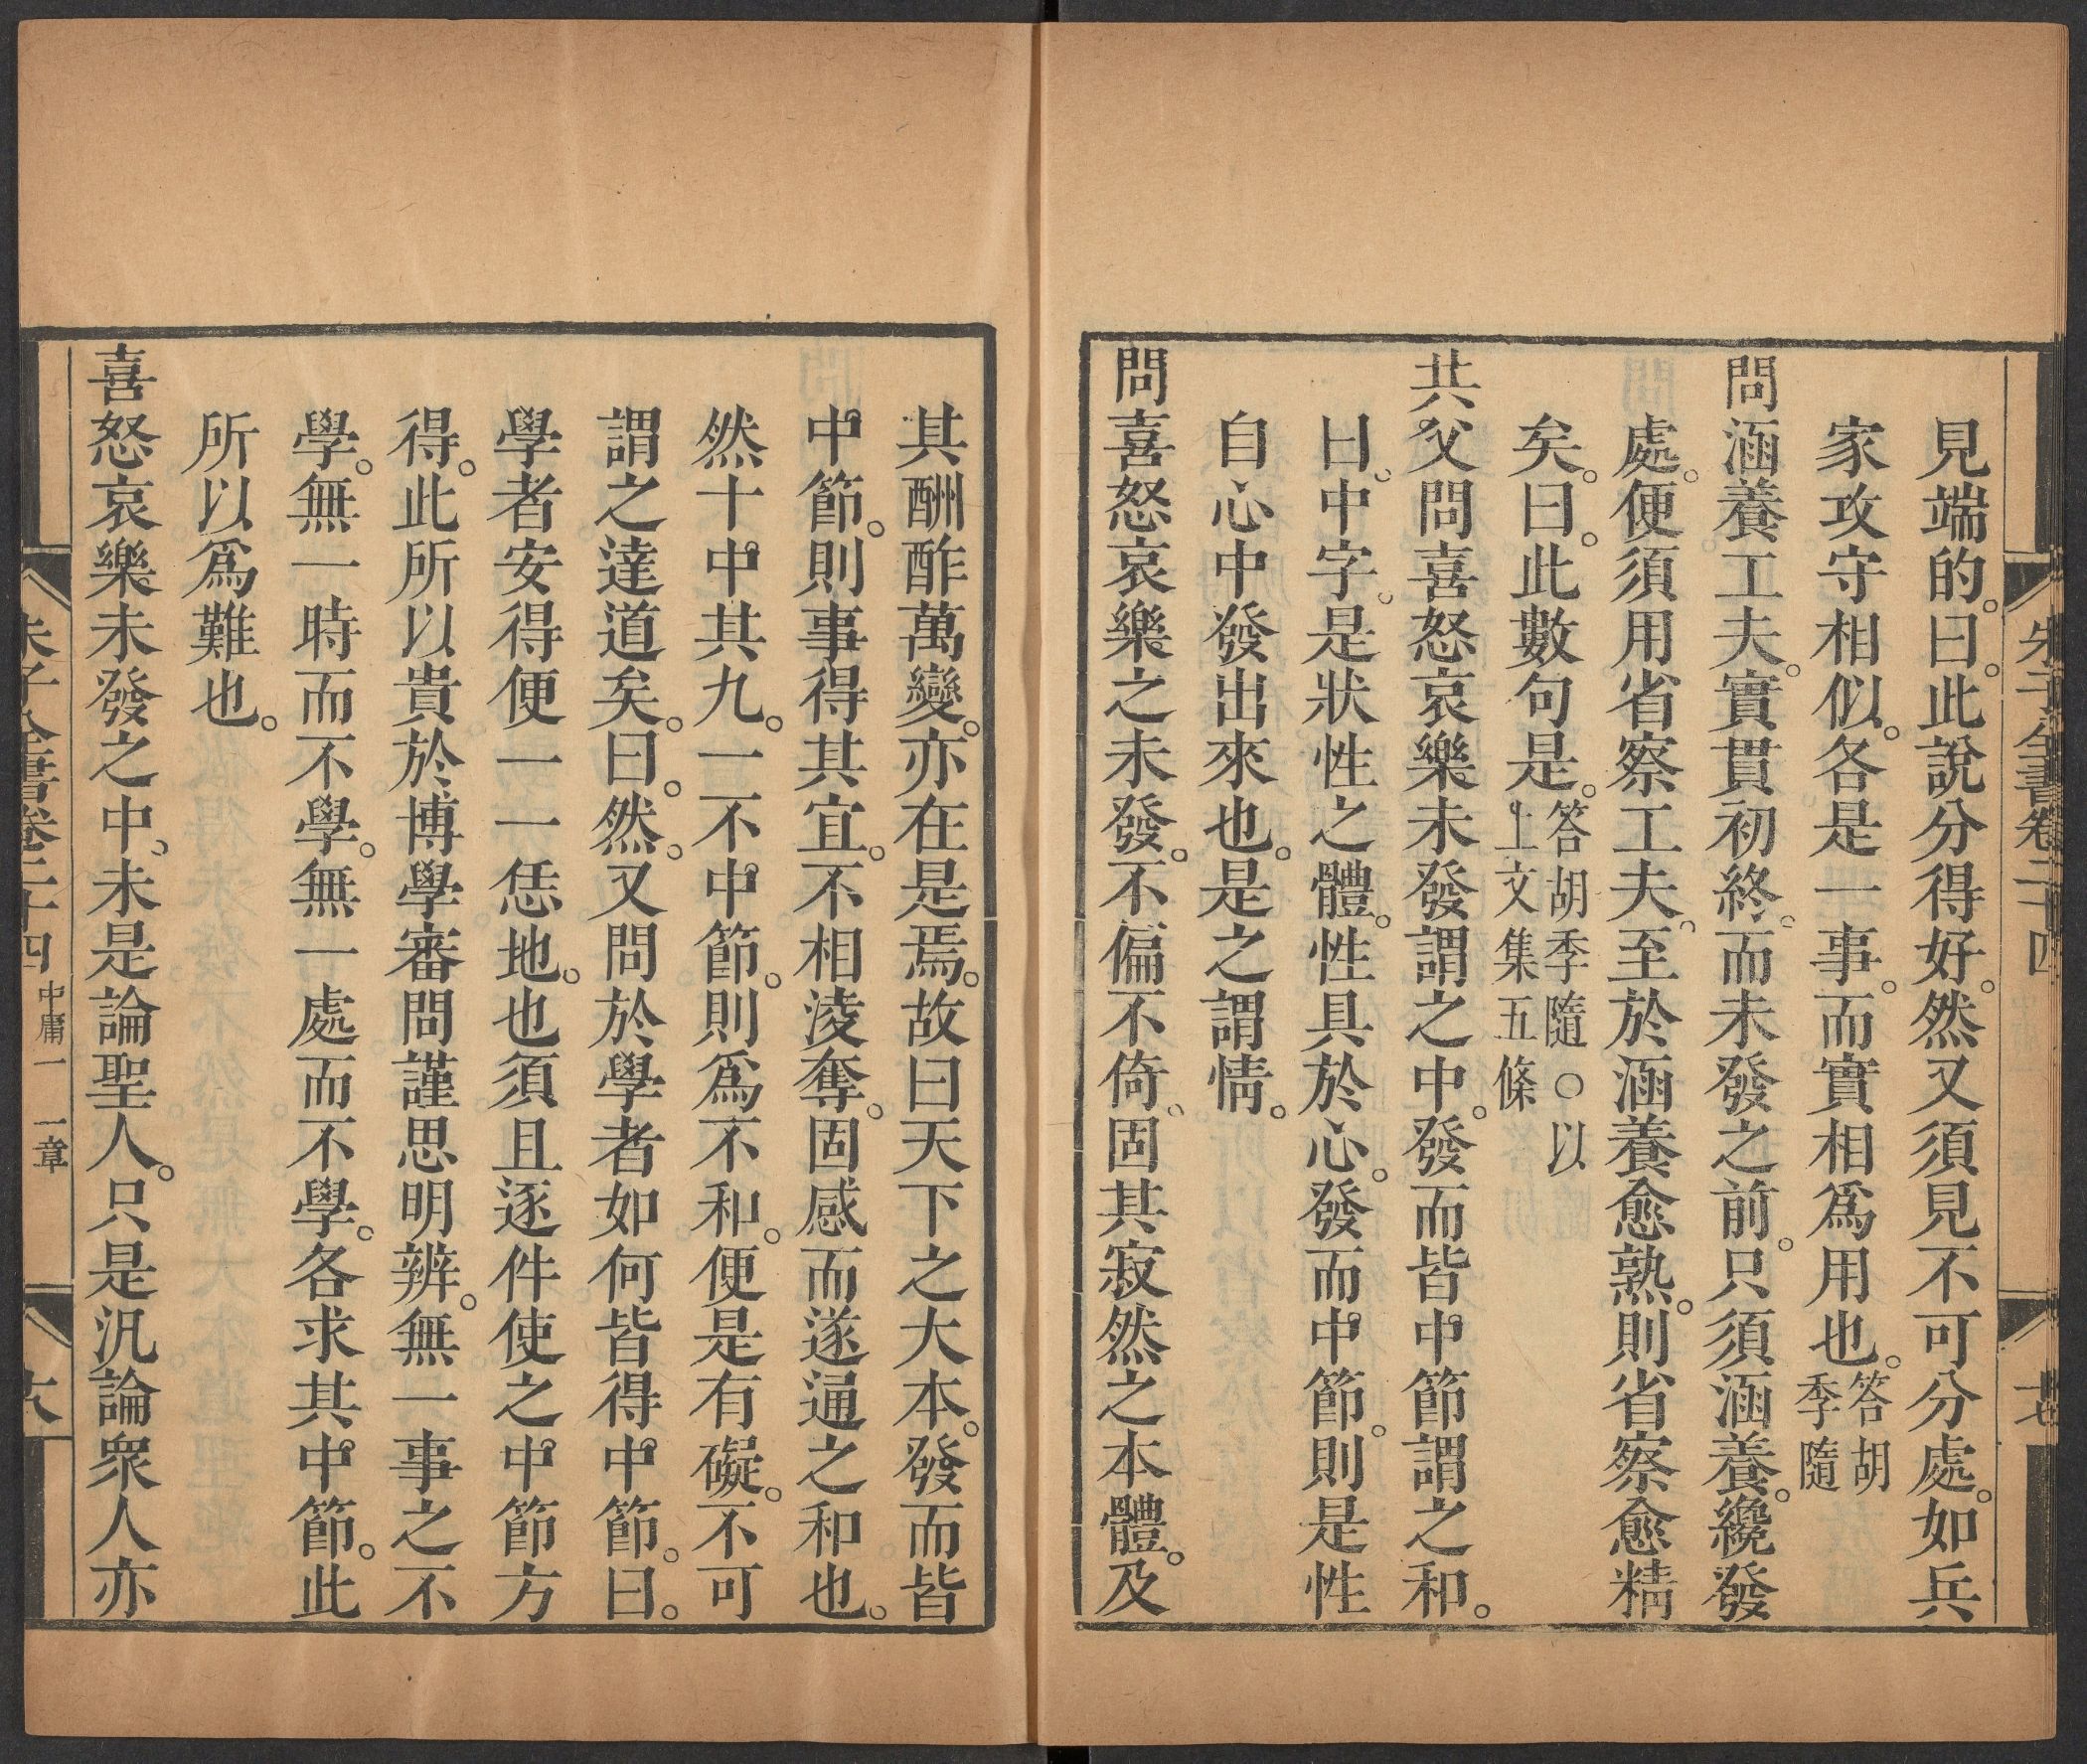 朱子全書卷二十四
十七
見端的。曰。此說分得好。然又須見不可分處。如兵
家攻守相似。各是一事。而實相爲用也。答胡季隨
問涵養工夫。實貫初終。而未發之前。只須涵養。纔發
處。便須用省察工夫。至於涵養愈熟。則省察愈精
矣。曰。此數句是。答胡季隨○以上文集五條
共父問喜怒哀樂未發謂之中。發而皆中節謂之和。
曰。中字。是狀性之體。性具於心。發而中節。則是性
自心中發出來也。是之謂情。
問喜怒哀樂之未發。不偏不倚。固其寂然之本體。及
其酬酢萬變。亦在是焉。故曰天下之大本。發而皆
中節。則事得其宜。不相淩奪。固感而遂通之和也。
然十中其九。一不中節。則爲不和。便是有礙。不可
謂之達道矣。曰。然。又問於學者如何皆得中節。曰。
學者安得便一一恁地。也須且逐件使之中節方
得。此所以貴於博學審問謹思明辨。無一事之不
學。無一時而不學。無一處而不學。各求其中節。此
所以爲難也。
喜怒哀樂未發之中、未是論聖人。只是汎論衆人亦
朱子全書卷二十四 中庸一 一章
十八